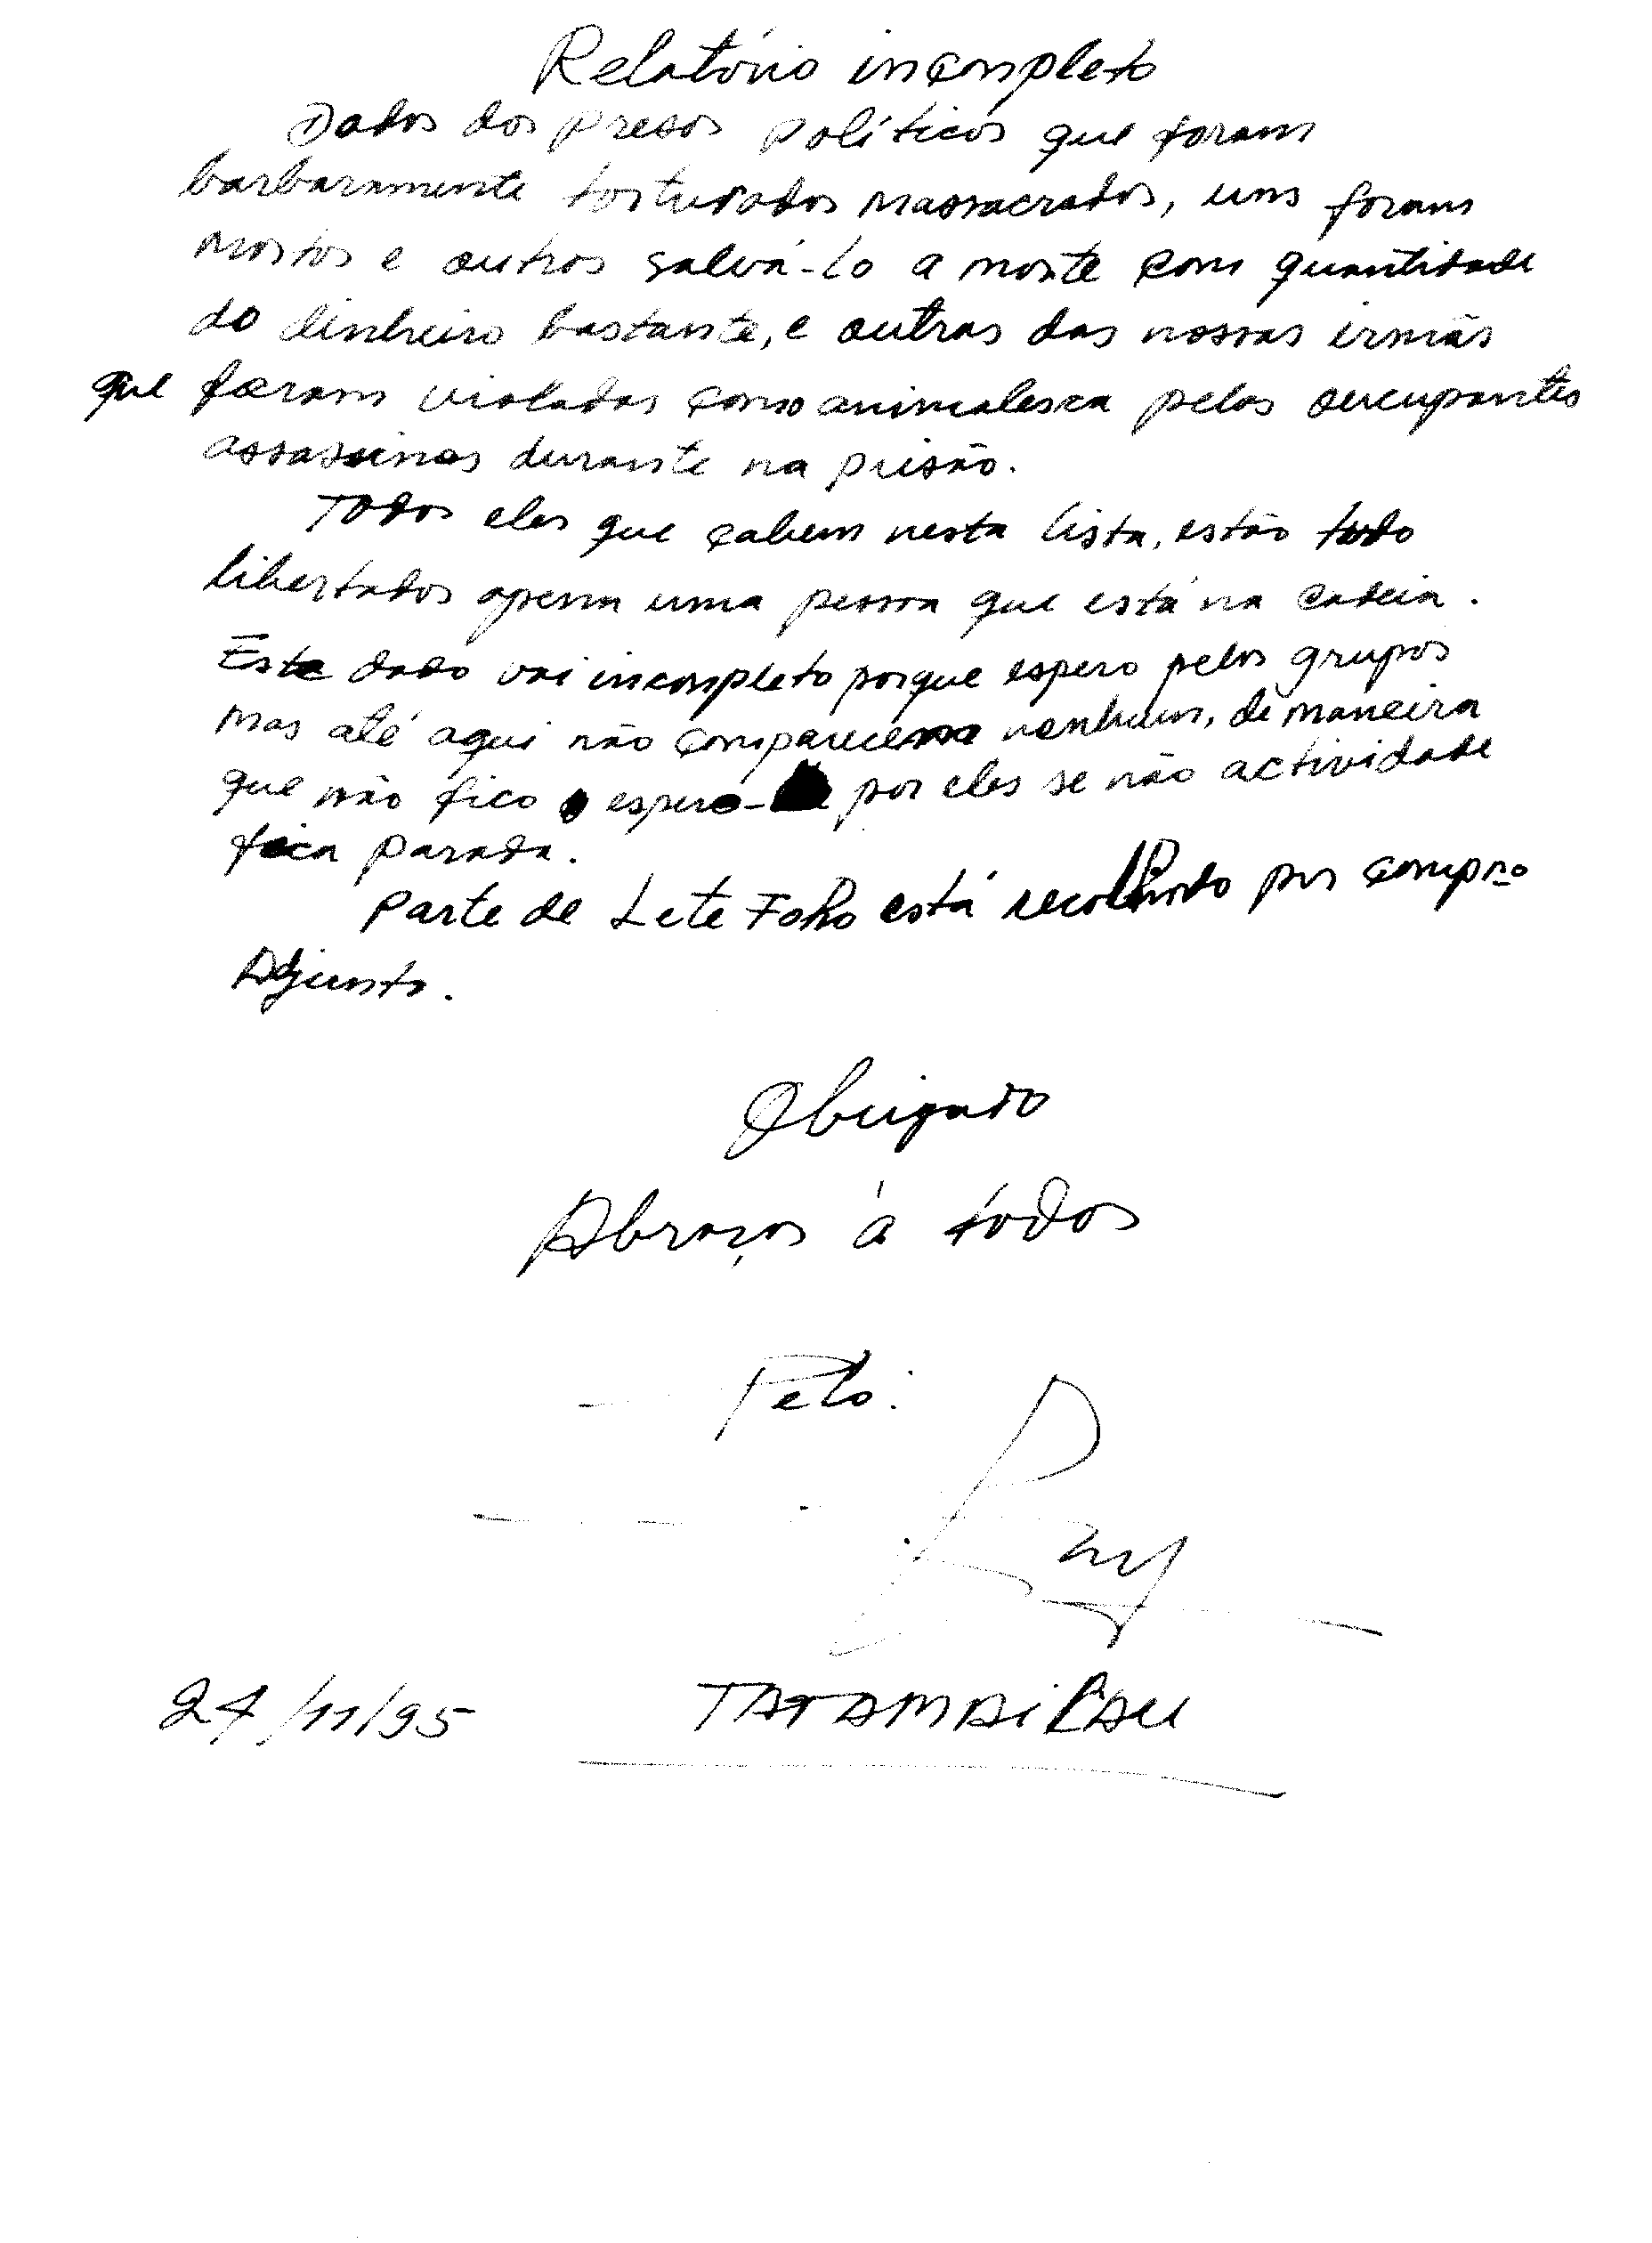 Relatório incompleto
Dados dos presos políticos que foram
barbaramente torturados massacrados, uns foram
mortos e outros salvá-lo a morte com quantidade
do dinheiro bastante, e outras das nossas irmãs
que foram violadas como animalesca pelos ocupantes
assassinos durante na prisão.
Todos eles que cabem nesta lista, estão todo
libertados apena uma pessoa que está na cadeia.
Este dado vai incompleto porque espero pelos grupos
mas até aqui não comparecem nenhum, de maneira
que não fico espero- por eles se não actividade
fica parada.
Parte de Lete Foho está recolhido por compno
Adjunto.
Obrigado
Abraços à todos
Pelo:
24/11/95 TATAMAILAU